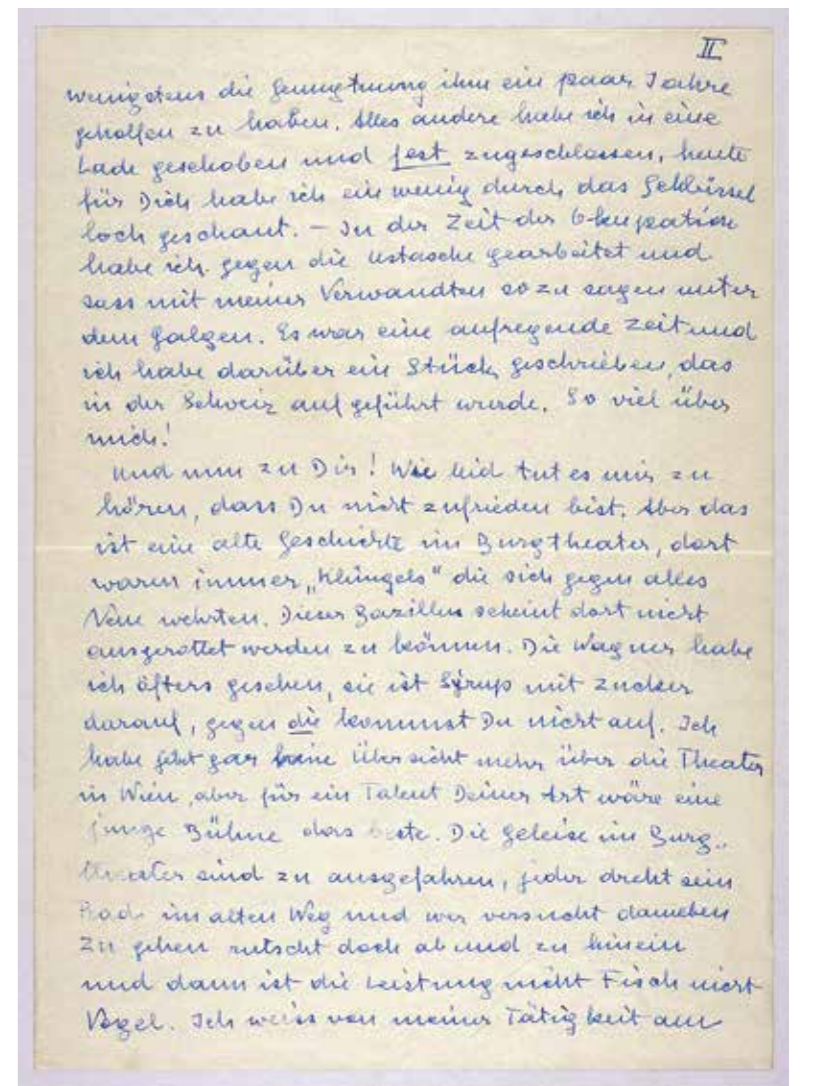 II
wenigstens die Genugtuung ihm ein paar Jahre
geholfen zu haben. Alles andere habe ich in eine
Lade geschoben und fest zugeschlossen, heute
für Dich habe ich ein wenig durch das Schlüssel
loch geschaut. – In der Zeit der Okupation
habe ich gegen die Ustasche gearbeitet und
sass mit meiner Verwandten so zu sagen unter
dem Galgen. Es war eine aufregende Zeit und
ich habe darüber ein Stück geschrieben, das
in der Schweiz aufgeführt wurde. So viel über
mich!
Und nun zu Dir! Wie leid tut es mir zu
hören, dass Du nicht zufrieden bist. Aber das
ist eine alte Geschichte im Burgtheater, dort
waren immer „Klüngels" die sich gegen alles
Neue wehrten. Dieser Bazillus scheint dort nicht
ausgerottet werden zu können. Die Wagner habe
ich öfters gesehen, sie ist Syrup mit Zucker
darauf, gegen die kommst Du nicht auf. Ich
habe jetzt gar keine Übersicht mehr über die Theater
in Wien, aber für ein Talent Deiner Art wäre eine
junge Bühne das beste. Die Geleise im Burg-
theater sind zu ausgefahren, jeder dreht sein
Rad im alten Weg und wer versucht daneben
zu gehen rutscht doch ab und zu hinein
und dann ist die Leistung nicht Fisch nicht
Vogel. Ich weiss von meiner Tätigkeit am